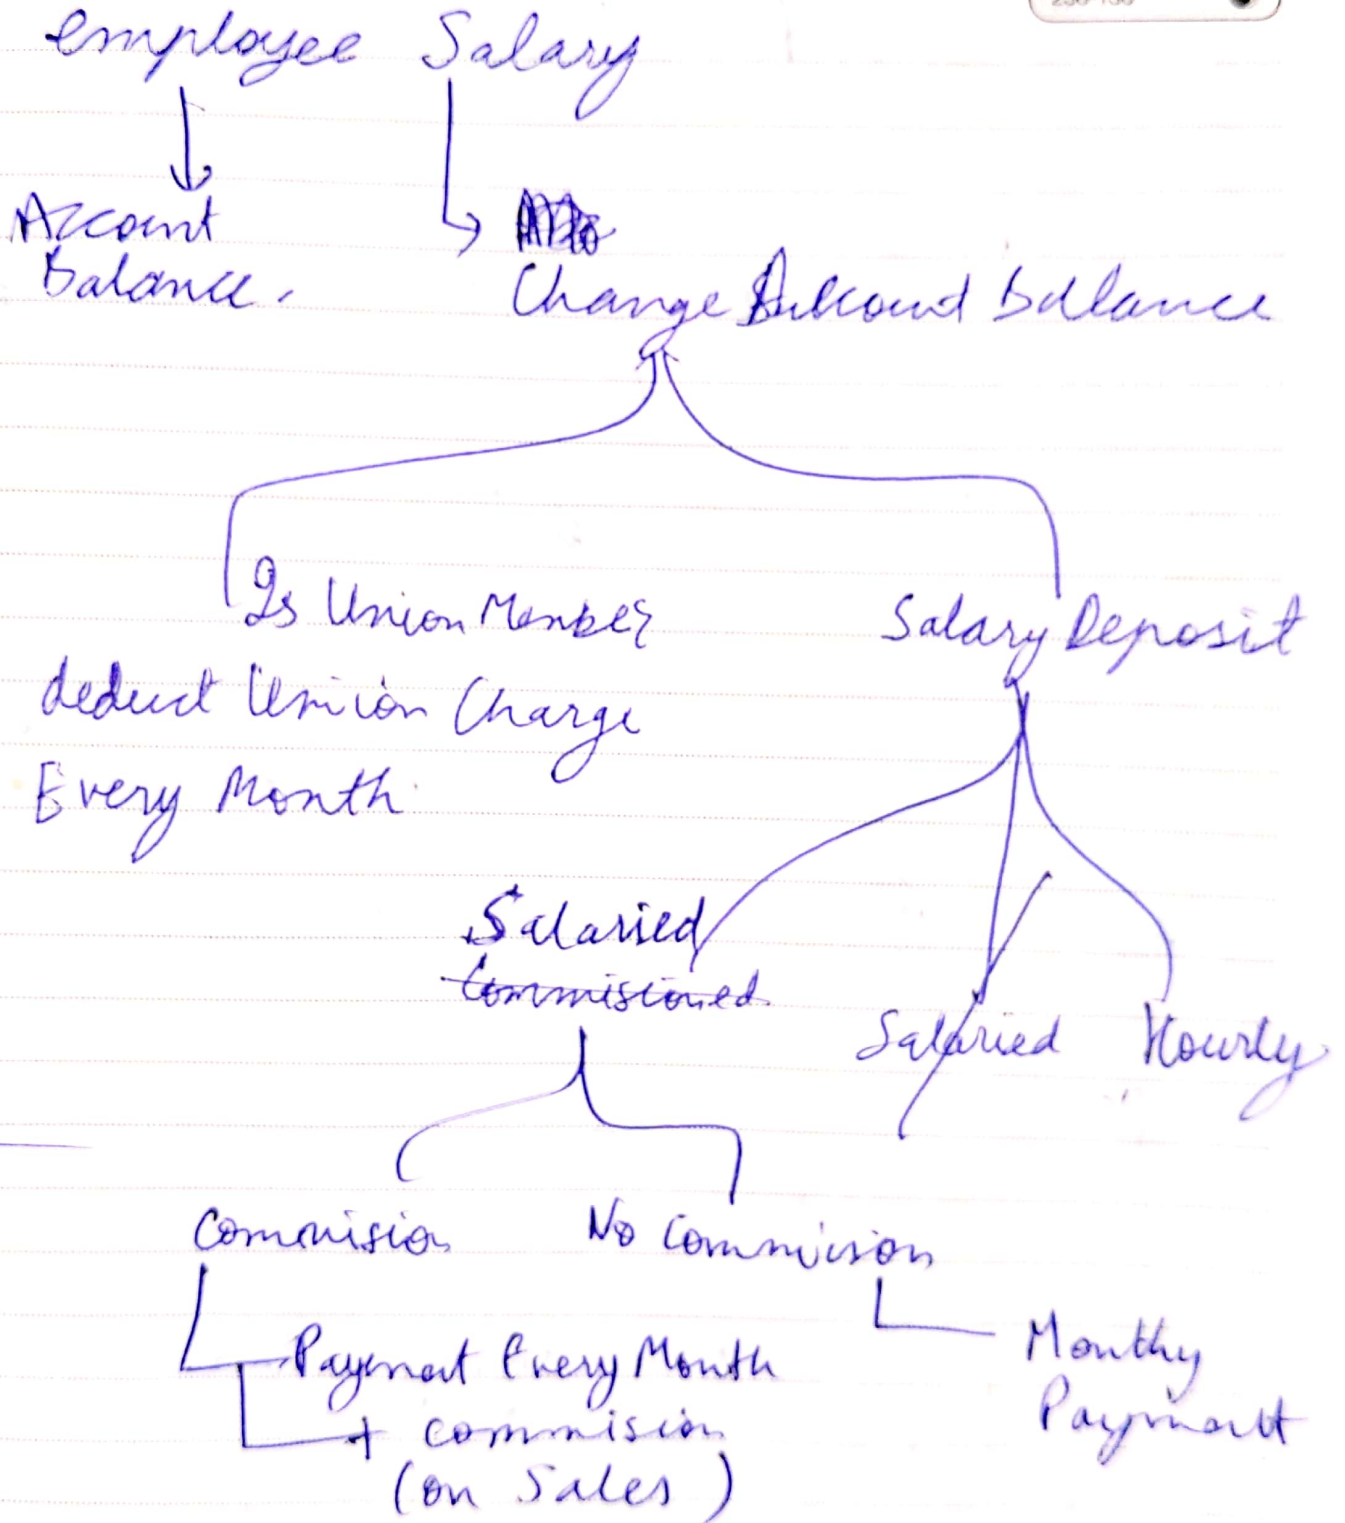 employee Salary
Account
Balance.
Change Account Ballance
Is Union Member
deduct Union Charge
Every Month
Salary Deposit
Salaried
Commisioned
Salaried Hourly
Commision
No Commision
Payment Every Month
+ commision
(on Sales)
Monthy
Payment